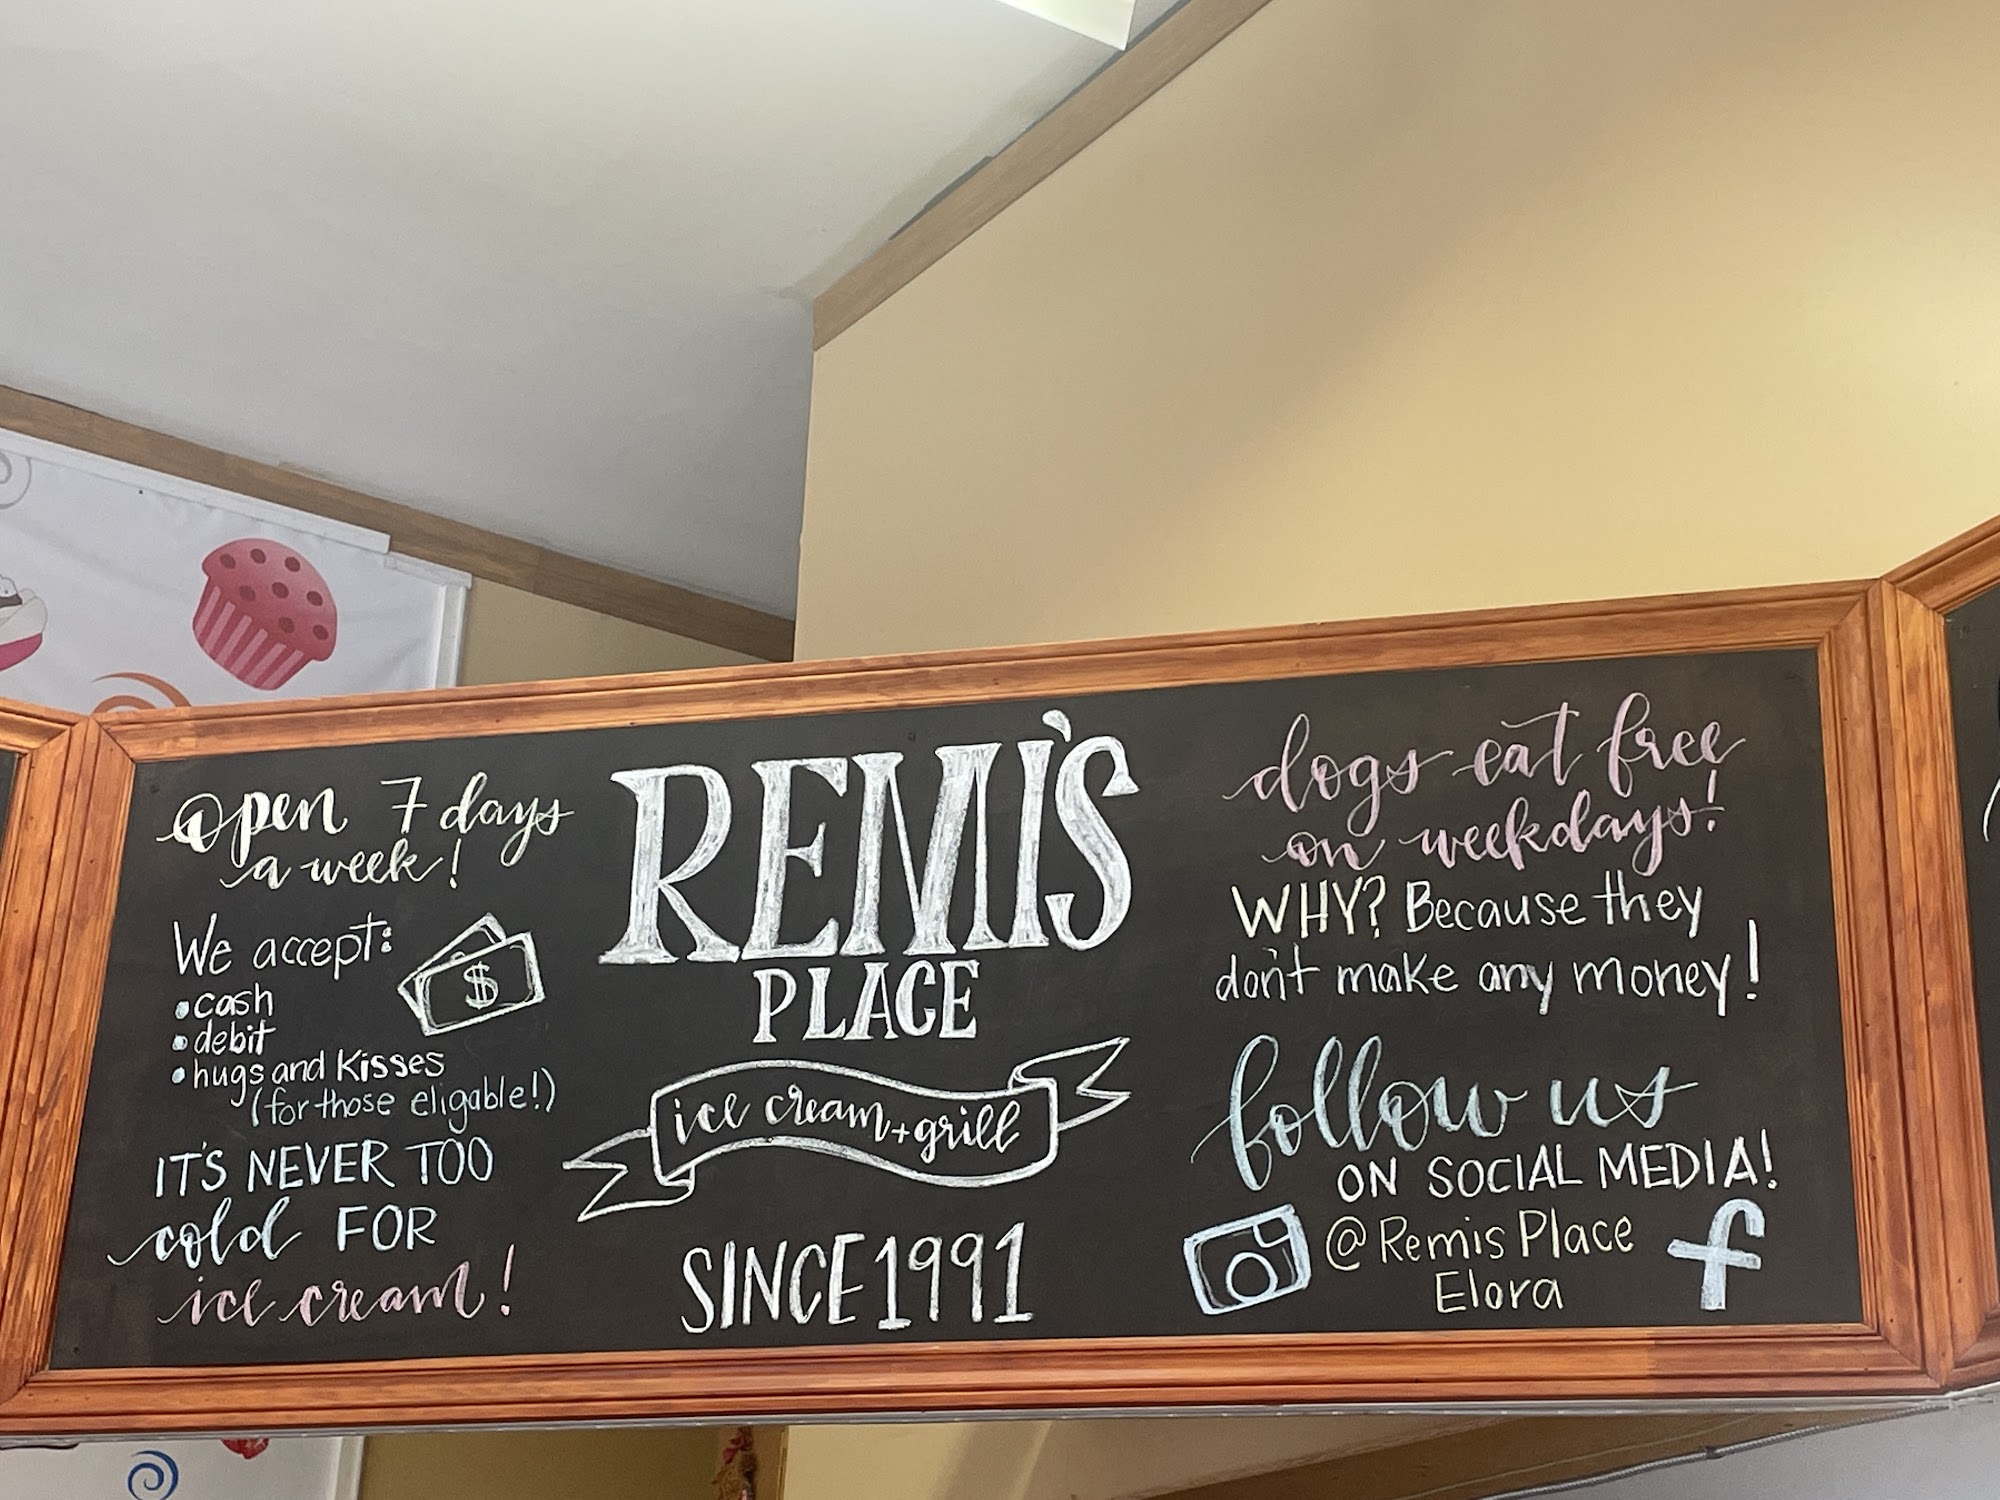 open 7 days
a week!
We accept:
$
• cash
• debit
• hugs and kisses
(for those eligable!)
IT'S NEVER TOO
cold FOR
ice cream!
REMI'S
PLACE
ice cream + grill
SINCE 1991
dogs eat free
on weekdays!
WHY? Because they
don't make any money!
follow us
ON SOCIAL MEDIA!
@Remis Place
Elora
f